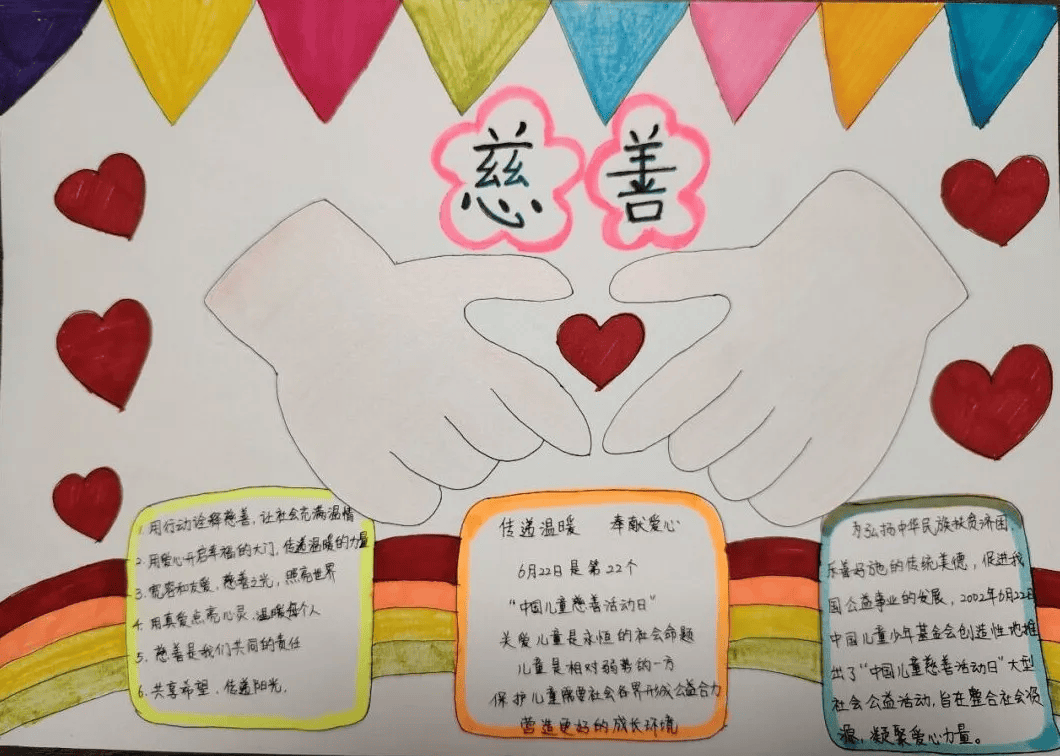 慈善
1. 用行动诠释慈善，让社会充满温情
2. 用爱心开启幸福的大门，传递温暖的力量
3. 宽容和友爱，慈善之光，照亮世界
4. 用真爱点亮心灵，温暖每个人
5. 慈善是我们共同的责任
6. 共享希望、传递阳光，
传递温暖 奉献爱心
6月22日是第22个
“中国儿童慈善活动日”
关爱儿童是永恒的社会命题
儿童是相对弱势的一方
保护儿童需要社会各界形成公益合力
营造更好的成长环境
为弘扬中华民族扶贫济困、
乐善好施的传统美德，促进我
国公益事业的发展，2002年6月22日
中国儿童少年基金会创造性地推
出了“中国儿童慈善活动日”大型
社会公益活动，旨在整合社会资
源，凝聚爱心力量。